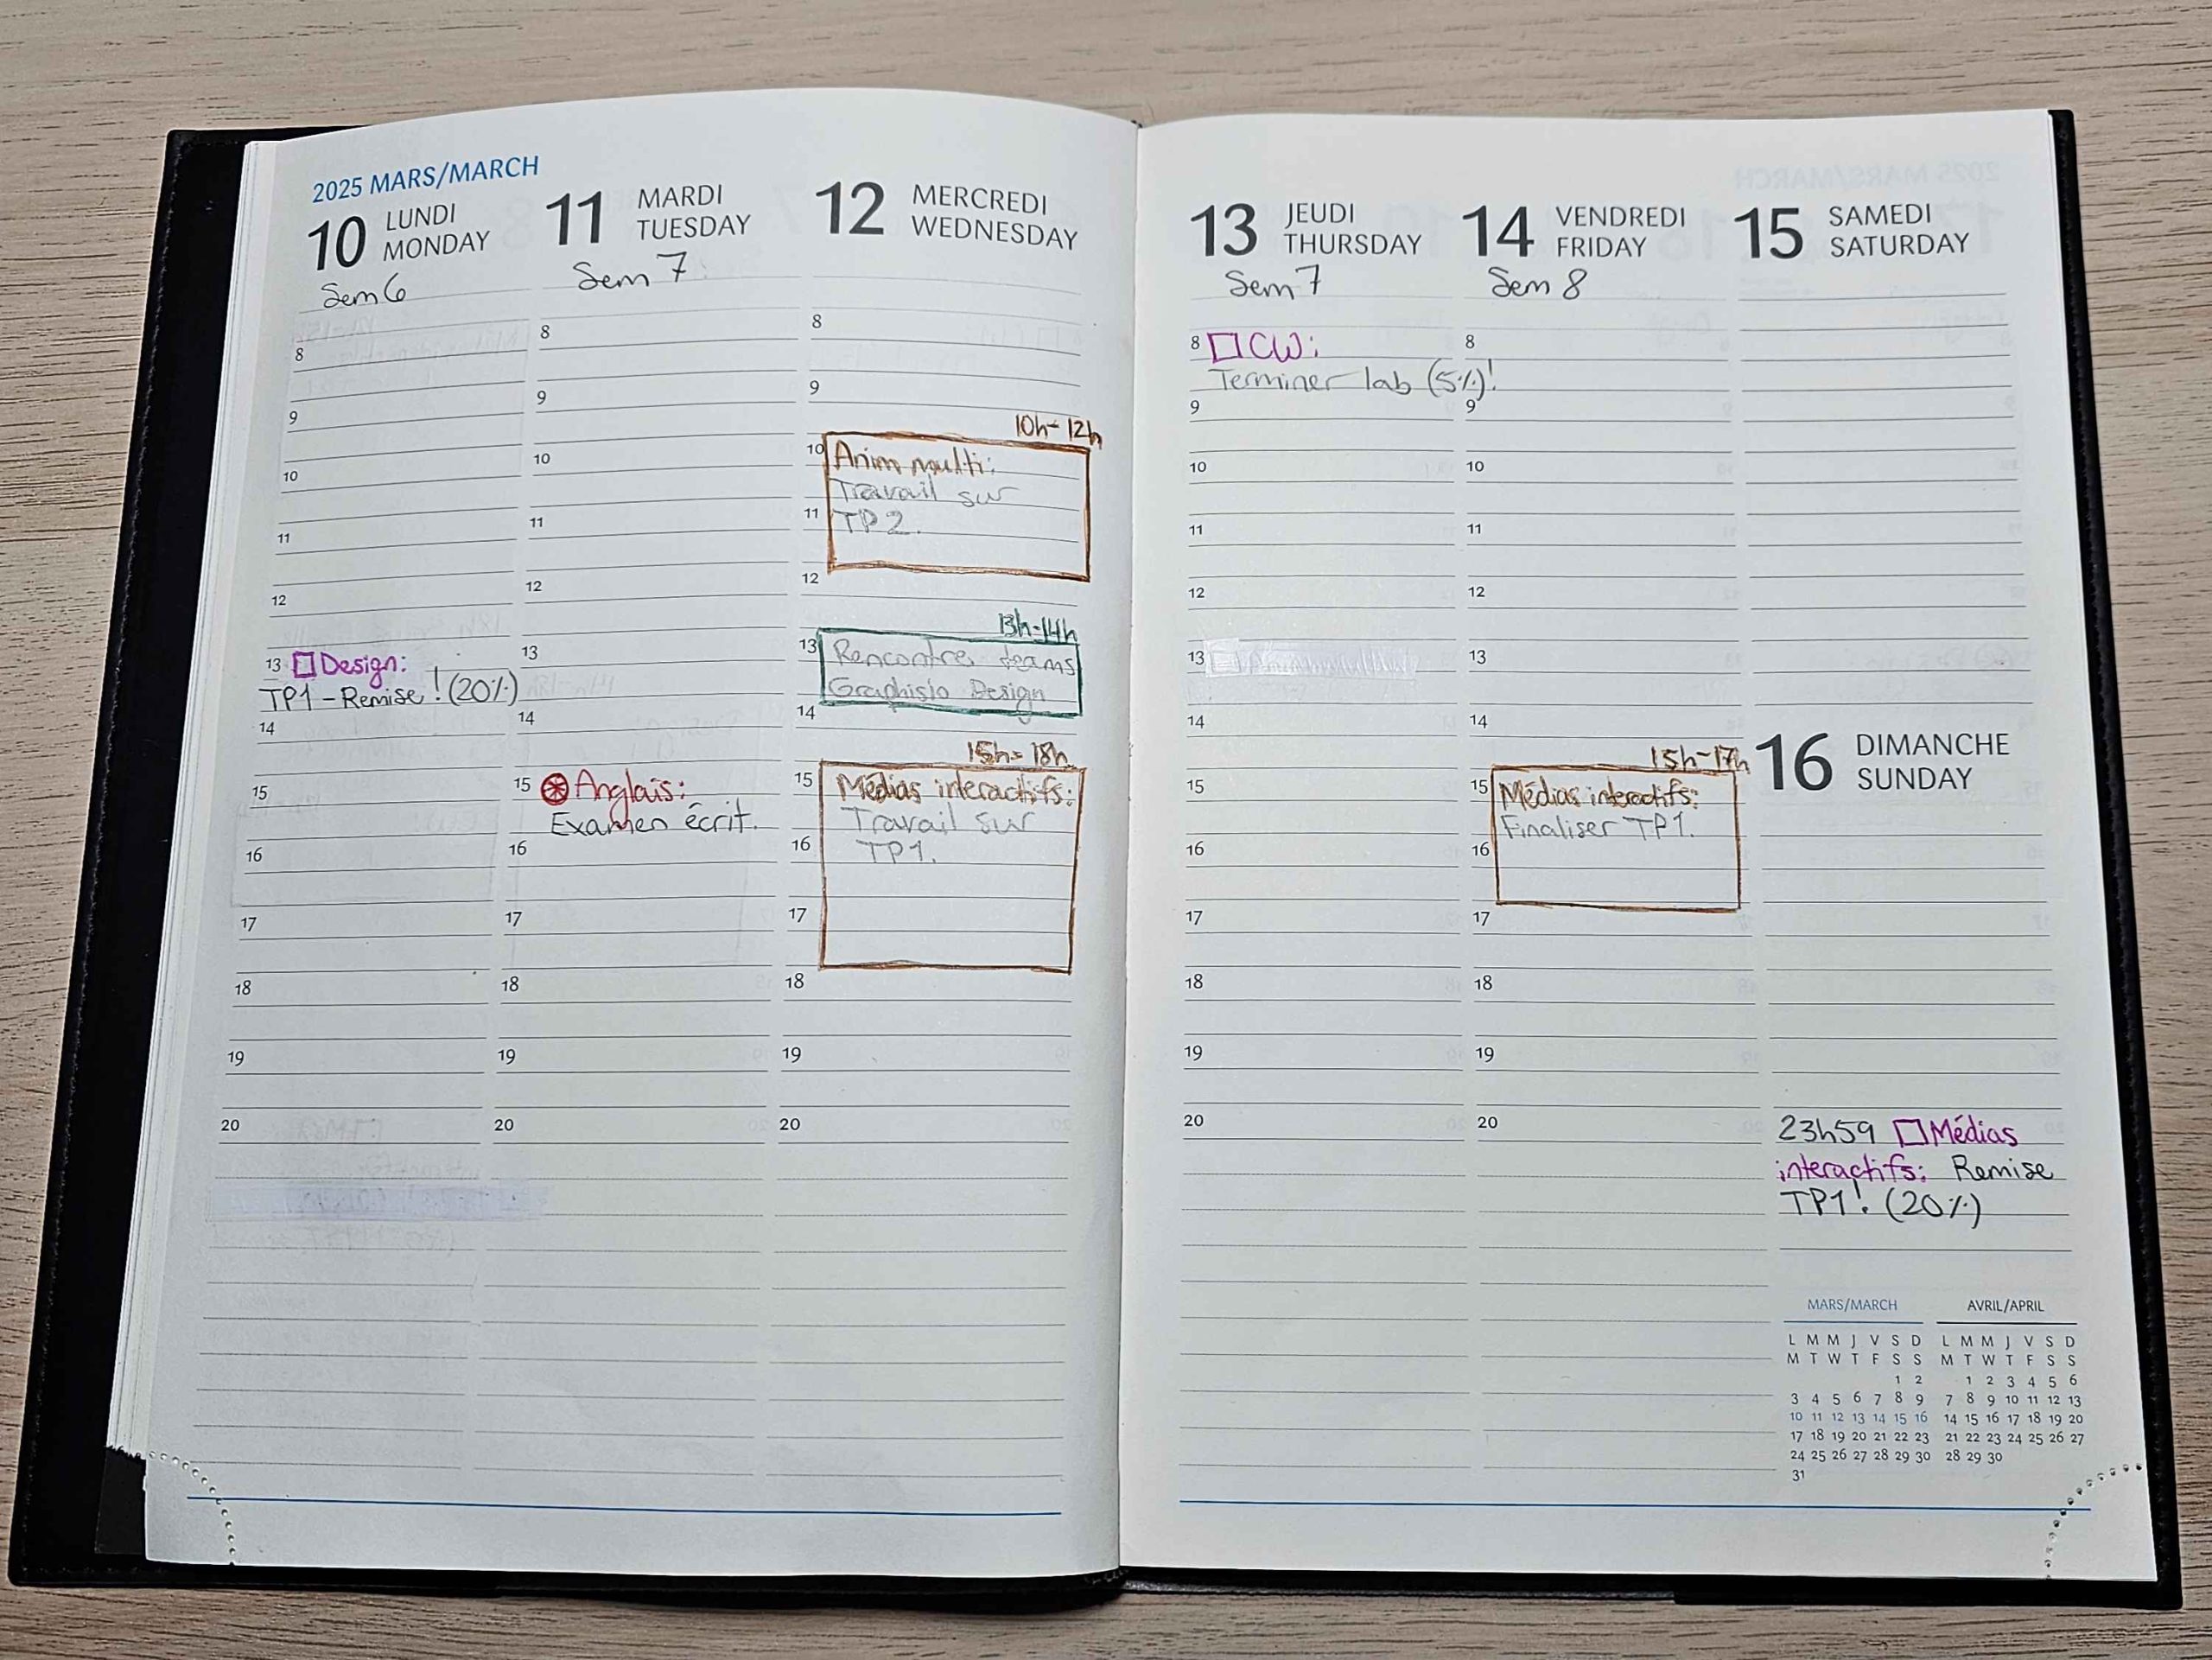 2025 MARS/MARCH
10 LUNDI
MONDAY
Sem 6
8
9
10
11
12
13 Design:
TP1 - Remise! (20%)
14
15
16
17
18
19
20
11 MARDI
TUESDAY
Sem 7
8
9
10
11
12
13
14
15 Anglais:
Examen écrit.
16
17
18
19
20
12 MERCREDI
WEDNESDAY
8
9
10h-12h
10 Anim multi:
Travail sur
11 TP2.
12
13h-14h
13 Rencontre teams
Graphisto Design
14
15h-18h
15 Médias interactifs:
Travail sur
16 TP1.
17
18
19
20
13 JEUDI
THURSDAY
Sem 7
8 CW:
Terminer lab (5%)!
9
10
11
12
13
14
15
16
17
18
19
20
14 VENDREDI
FRIDAY
Sem 8
8
9
10
11
12
13
14
15h-17h
15 Médias interactifs:
Finaliser TP1.
16
17
18
19
20
15 SAMEDI
SATURDAY
16 DIMANCHE
SUNDAY
23h59 Médias
interactifs: Remise
TP1! (20%)
MARS/MARCH
L M M J V S D
M T W T F S S
1 2
3 4 5 6 7 8 9
10 11 12 13 14 15 16
17 18 19 20 21 22 23
24 25 26 27 28 29 30
31
AVRIL/APRIL
L M M J V S D
M T W T F S S
1 2 3 4 5 6
7 8 9 10 11 12 13
14 15 16 17 18 19 20
21 22 23 24 25 26 27
28 29 30